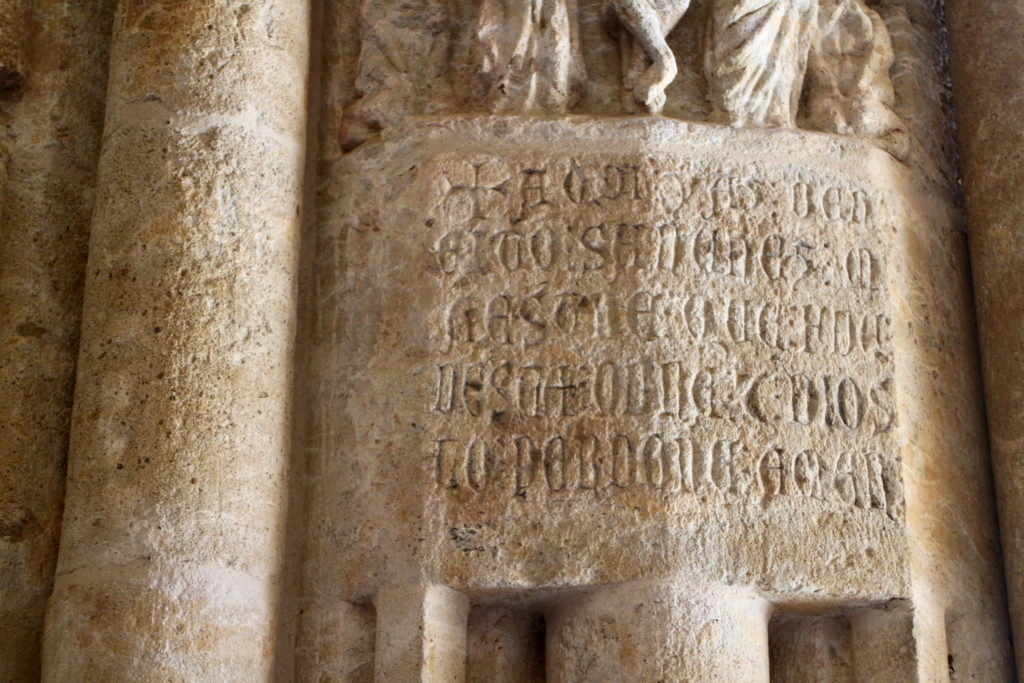 + AQUI YAS BEN
EITO : SANCHES : M
AESTRE : QUE : FUE
DESTA OBRA E DIOS
LO : PERDONE AMEN